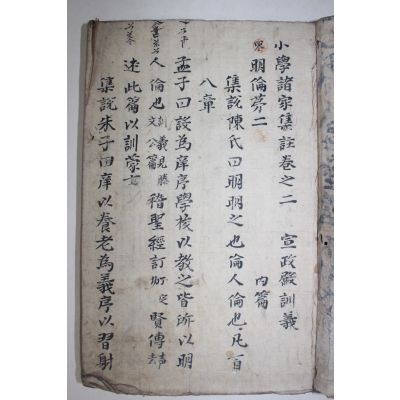 小學諸家集註卷之二 宣政殿訓義
內篇
明倫第二
集說陳氏曰明明之也倫人倫也凡一百
八章
孟子曰設為庠序學校以教之皆所以明
人倫也訓義見滕文公篇稽聖經訂賢傳
述此篇以訓蒙士
集說朱子曰庠以養老為義序以習射